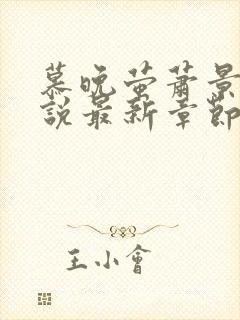 慕晚萤萧景
說最新章節
王小會